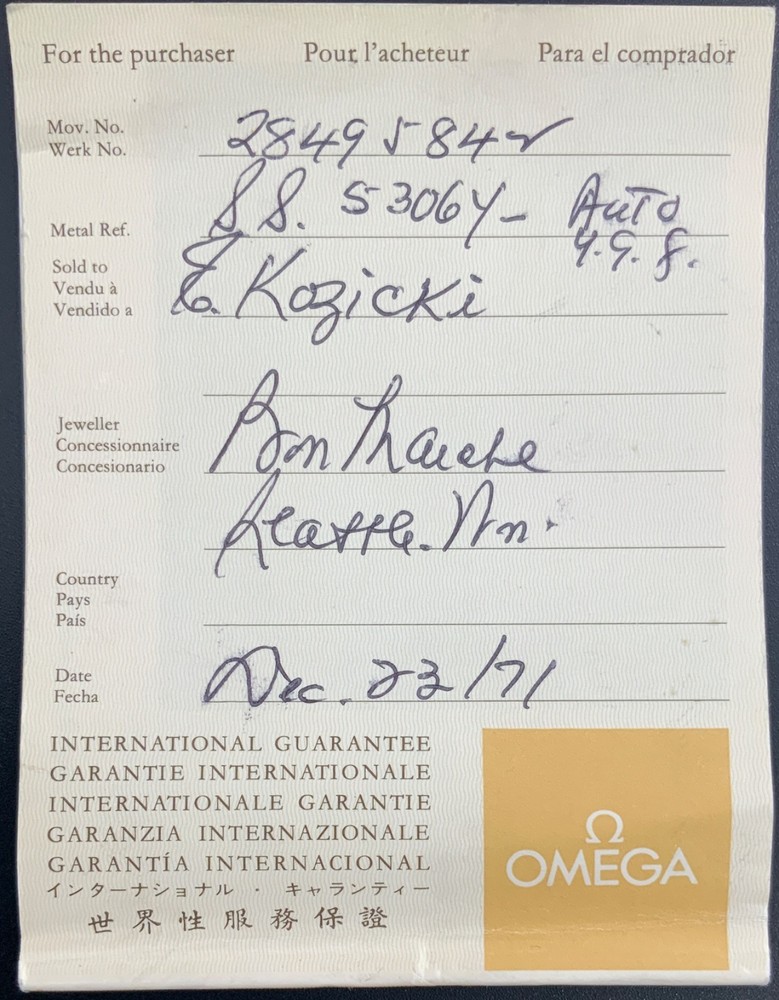 For the purchaser Pour l'acheteur Para el comprador
Mov. No.
Werk No.
28495842
Metal Ref.
SS. 53064- Auto
Y.G.f.
Sold to
Vendu à
Vendido a
E. Kozicki
Jeweller
Concessionnaire
Concesionario
Bon Marche
Seattle. Wn.
Country
Pays
País
Date
Fecha
Dec. 23/71
INTERNATIONAL GUARANTEE
GARANTIE INTERNATIONALE
INTERNATIONALE GARANTIE
GARANZIA INTERNAZIONALE
GARANTÍA INTERNACIONAL
インターナショナル · キャランティー
世界性服務保證
Ω
OMEGA